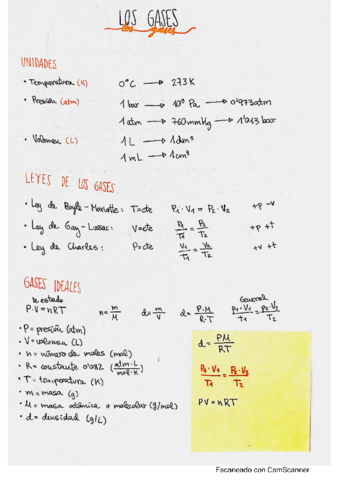 LOS GASES
los gases
UNIDADES
• Temperatura (K) 0°C → 273K
• Presión (atm) 1 bar → 10⁵ Pa → 0'973atm
1 atm → 760mmHg → 1'013 bar
• Volumen (L) 1L → 1dm³
1mL → 1cm³
LEYES DE LOS GASES
• Ley de Boyle-Mariotte: T=cte P₁·V₁ = P₂·V₂ +p -v
• Ley de Gay-Lussac: V=cte P₁/T₁ = P₂/T₂ +p +t
• Ley de Charles: P=cte V₁/T₁ = V₂/T₂ +v +t
GASES IDEALES
de estado
General
P·V=nRT n=m/M d=m/V d=P·M/R·T P₁·V₁/T₁ = P₂·V₂/T₂
• P= presión (atm)
• V= volumen (L)
• n= número de moles (mol)
• R= constante 0'082 (atm·L/mol·K)
• T= temperatura (K)
• m= masa (g)
• M= masa atómica o molecular (g/mol)
• d= densidad (g/L)
d=PM/RT
P₁·V₁/T₁ = P₂·V₂/T₂
PV=nRT
Escaneado con CamScanner